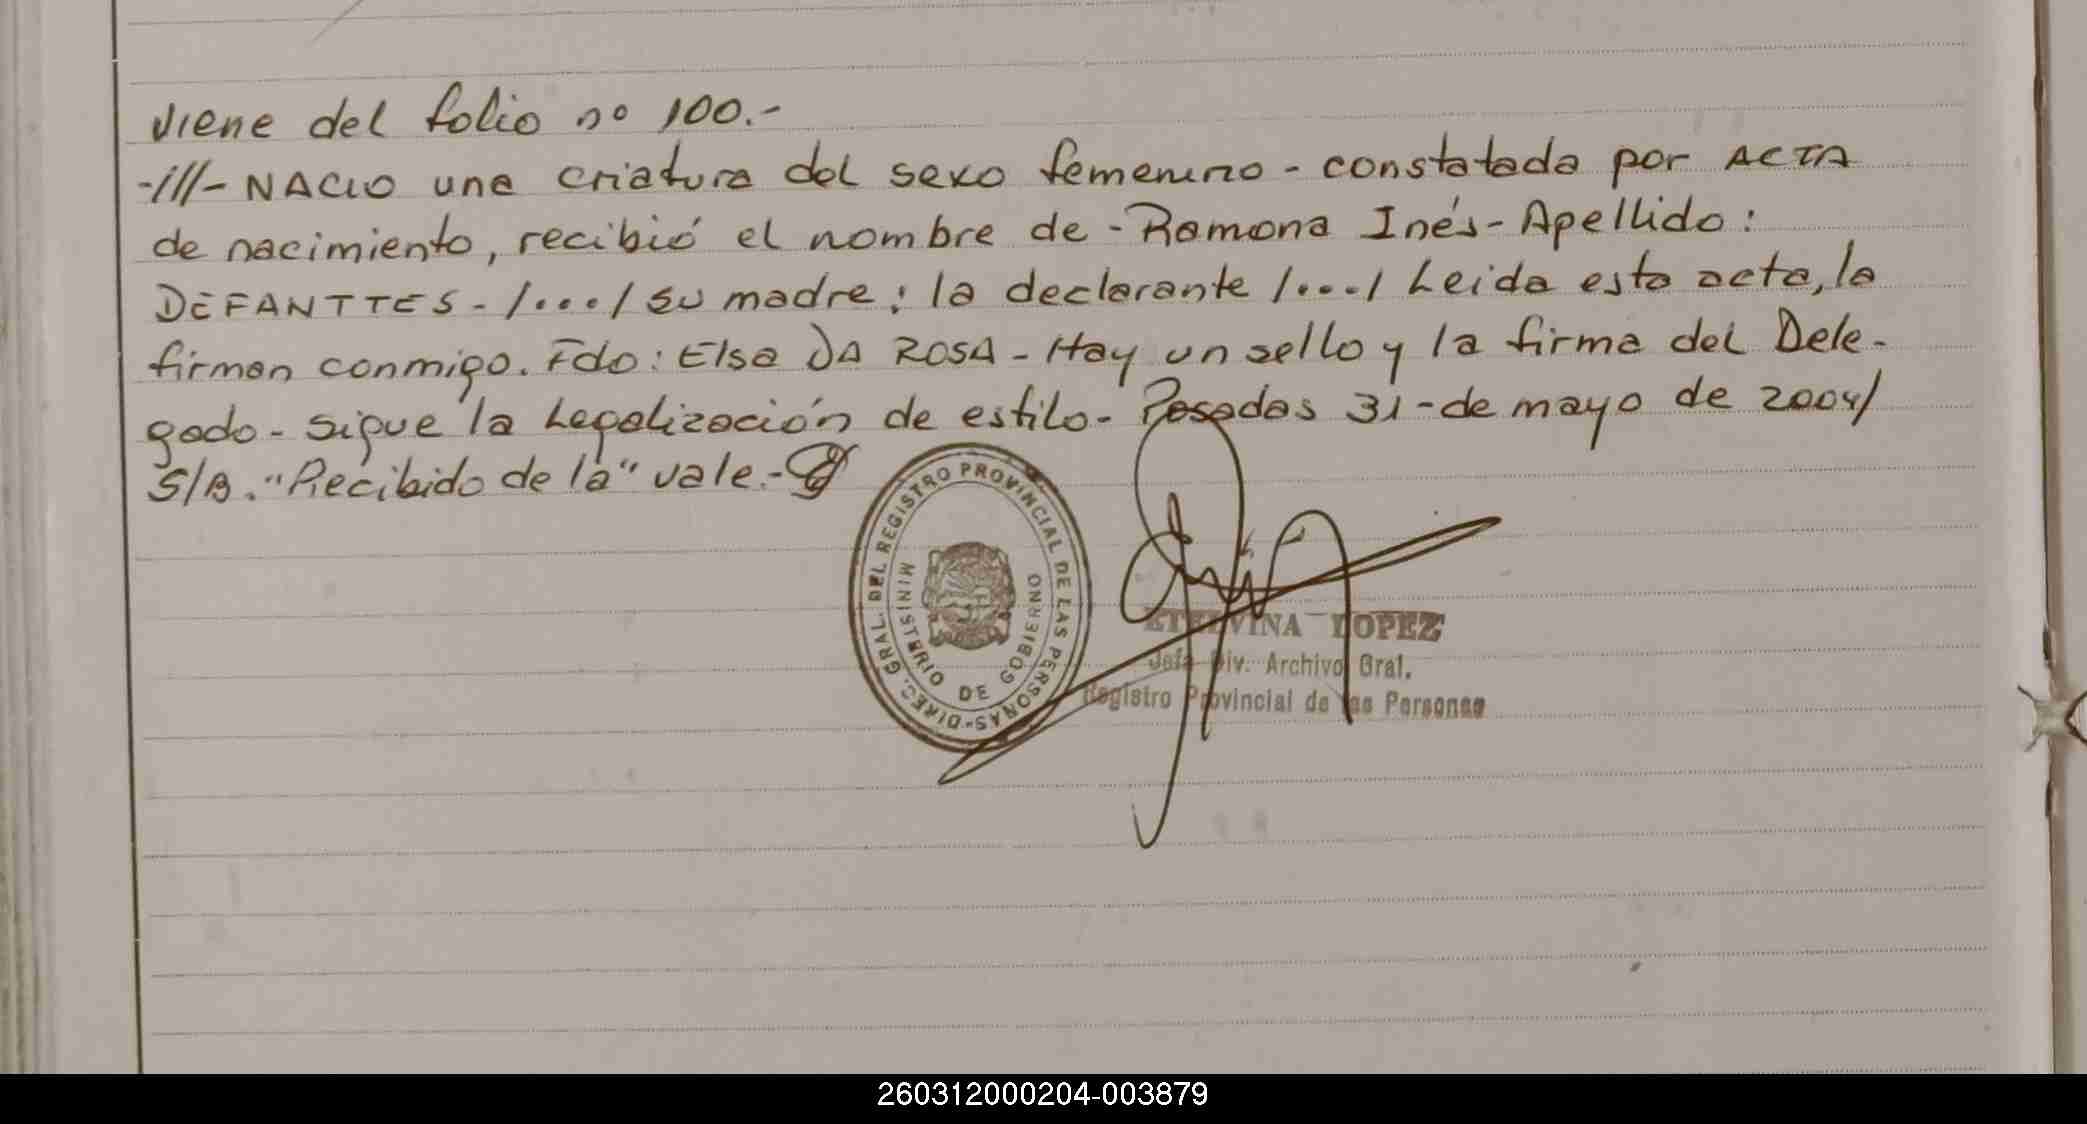 viene del folio nº 100.-
-///- NACIO una criatura del sexo femenino - constatada por ACTA
de nacimiento, recibió el nombre de - Ramona Inés - Apellido :
DEFANTTES - /..../ su madre : la declarante /..../ Leida esta acta, la
firman conmigo. Fdo : Elsa DA ROSA - Hay un sello y la firma del Dele-
gado - sigue la Legalización de estilo - Posadas 31 - de mayo de 2004/
S/B. "Recibido de la" vale.-
DIREC. GRAL. DEL REGISTRO PROVINCIAL DE LAS PERSONAS-
MINISTERIO DE GOBIERNO
ETELVINA LOPEZ
Jefa Div. Archivo Gral.
Registro Provincial de las Personas
260312000204-003879